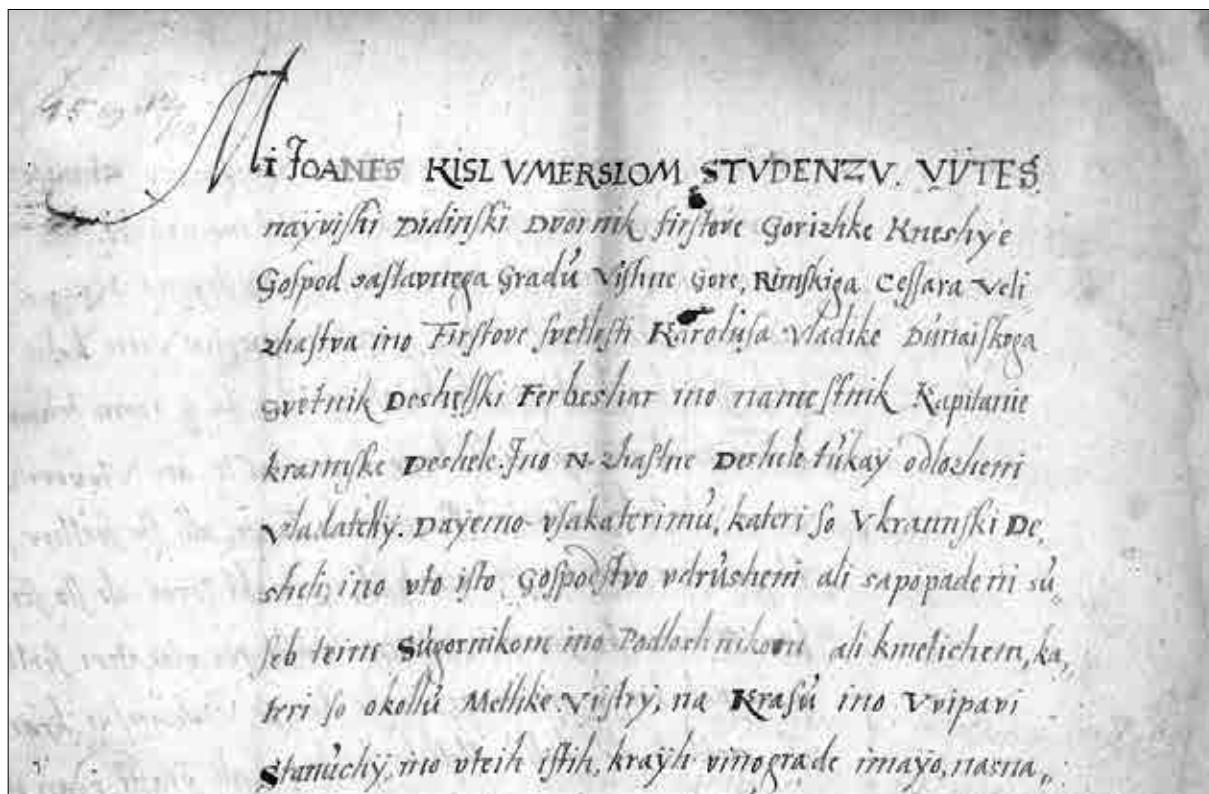 Mi JOANES KISL VMERSLOM STVDENZV. VVTES.
nayviſhi Didinſki Dvornik firſtove Gorizhke Kneshye
Goſpod saſtavnega Gradu Viſhne Gore, Rimſkiga Ceſſara Veli
zhaſtva ino Firſtove ſvetloſti Karoluſa Vladike Dunaiſkoga
Svetnik Desheſſki Ferbeshar ino nameſtnik Kapitanie
krainſke Deshele. Jno N. zhaſtne Deshele tukay odlozheni
Vladatelhy. Dayemo vſakaterimu, kateri ſo Vkrainſki De,
sheli ino vto iſto Goſpodſtvo vdrusheni ali sapopadeni ſu,,
ſeb teim Sugornikom ino Podloshnikom, ali kmetichem, ka,,
teri ſo okollu Metlike Viſtry, na Kraſu ino Vvipavi
Stanuchy, ino vteih iſtih, krayh vinograde imayo, nasna,,